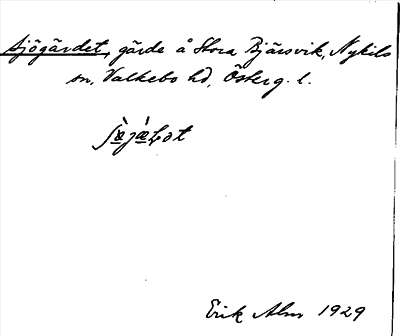 Sjögärdet, gärde å Stora Bjärsvik, Nykils
sn, Valkebo hd, Österg. l.
Erik Alm 1929